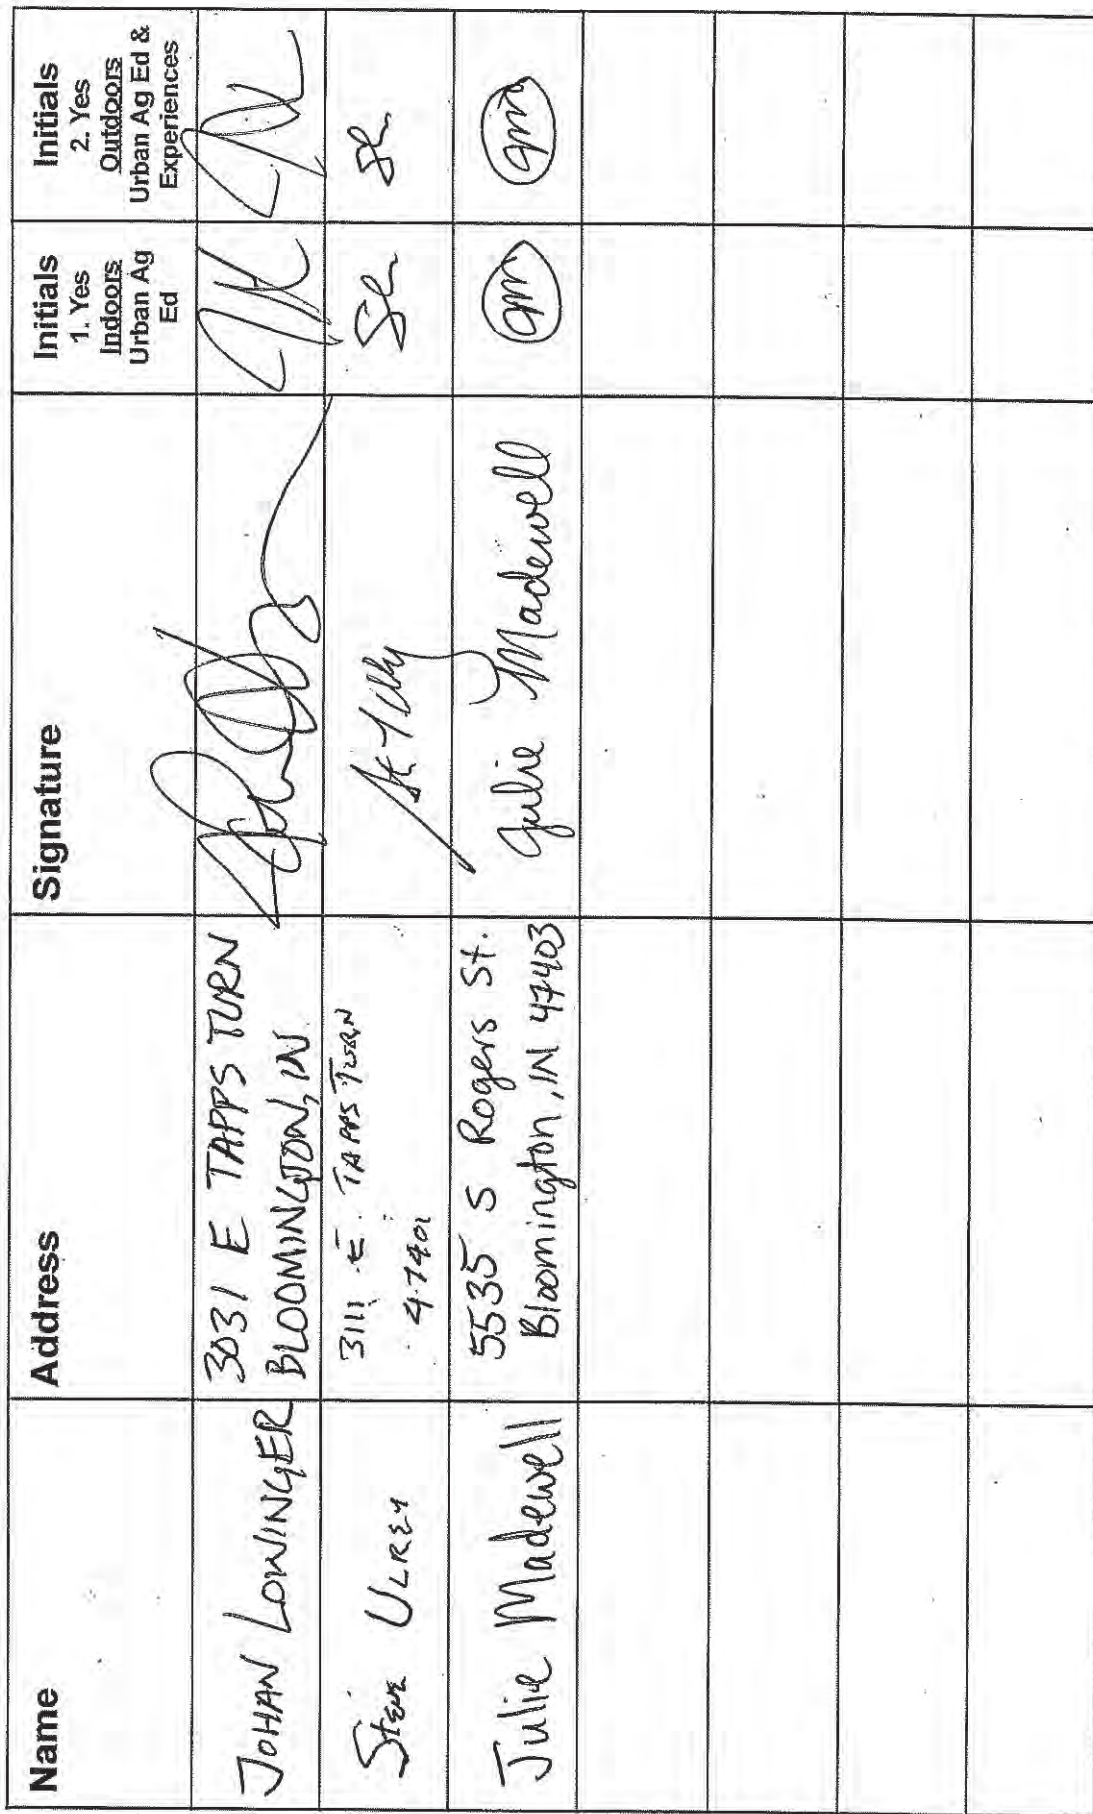 Name
Address
Signature
Initials
1. Yes
Indoors
Urban Ag
Ed
Initials
2. Yes
Outdoors
Urban Ag Ed &
Experiences
JOHAN LOWINGER
3031 E TAPPS TURN
BLOOMINGTON, IN
Steve ULREY
3111 E. TAPPS TURN
47401
Julie Madewell
5535 S Rogers St.
Bloomington, IN 47403
Julie Madewell
jm
jm